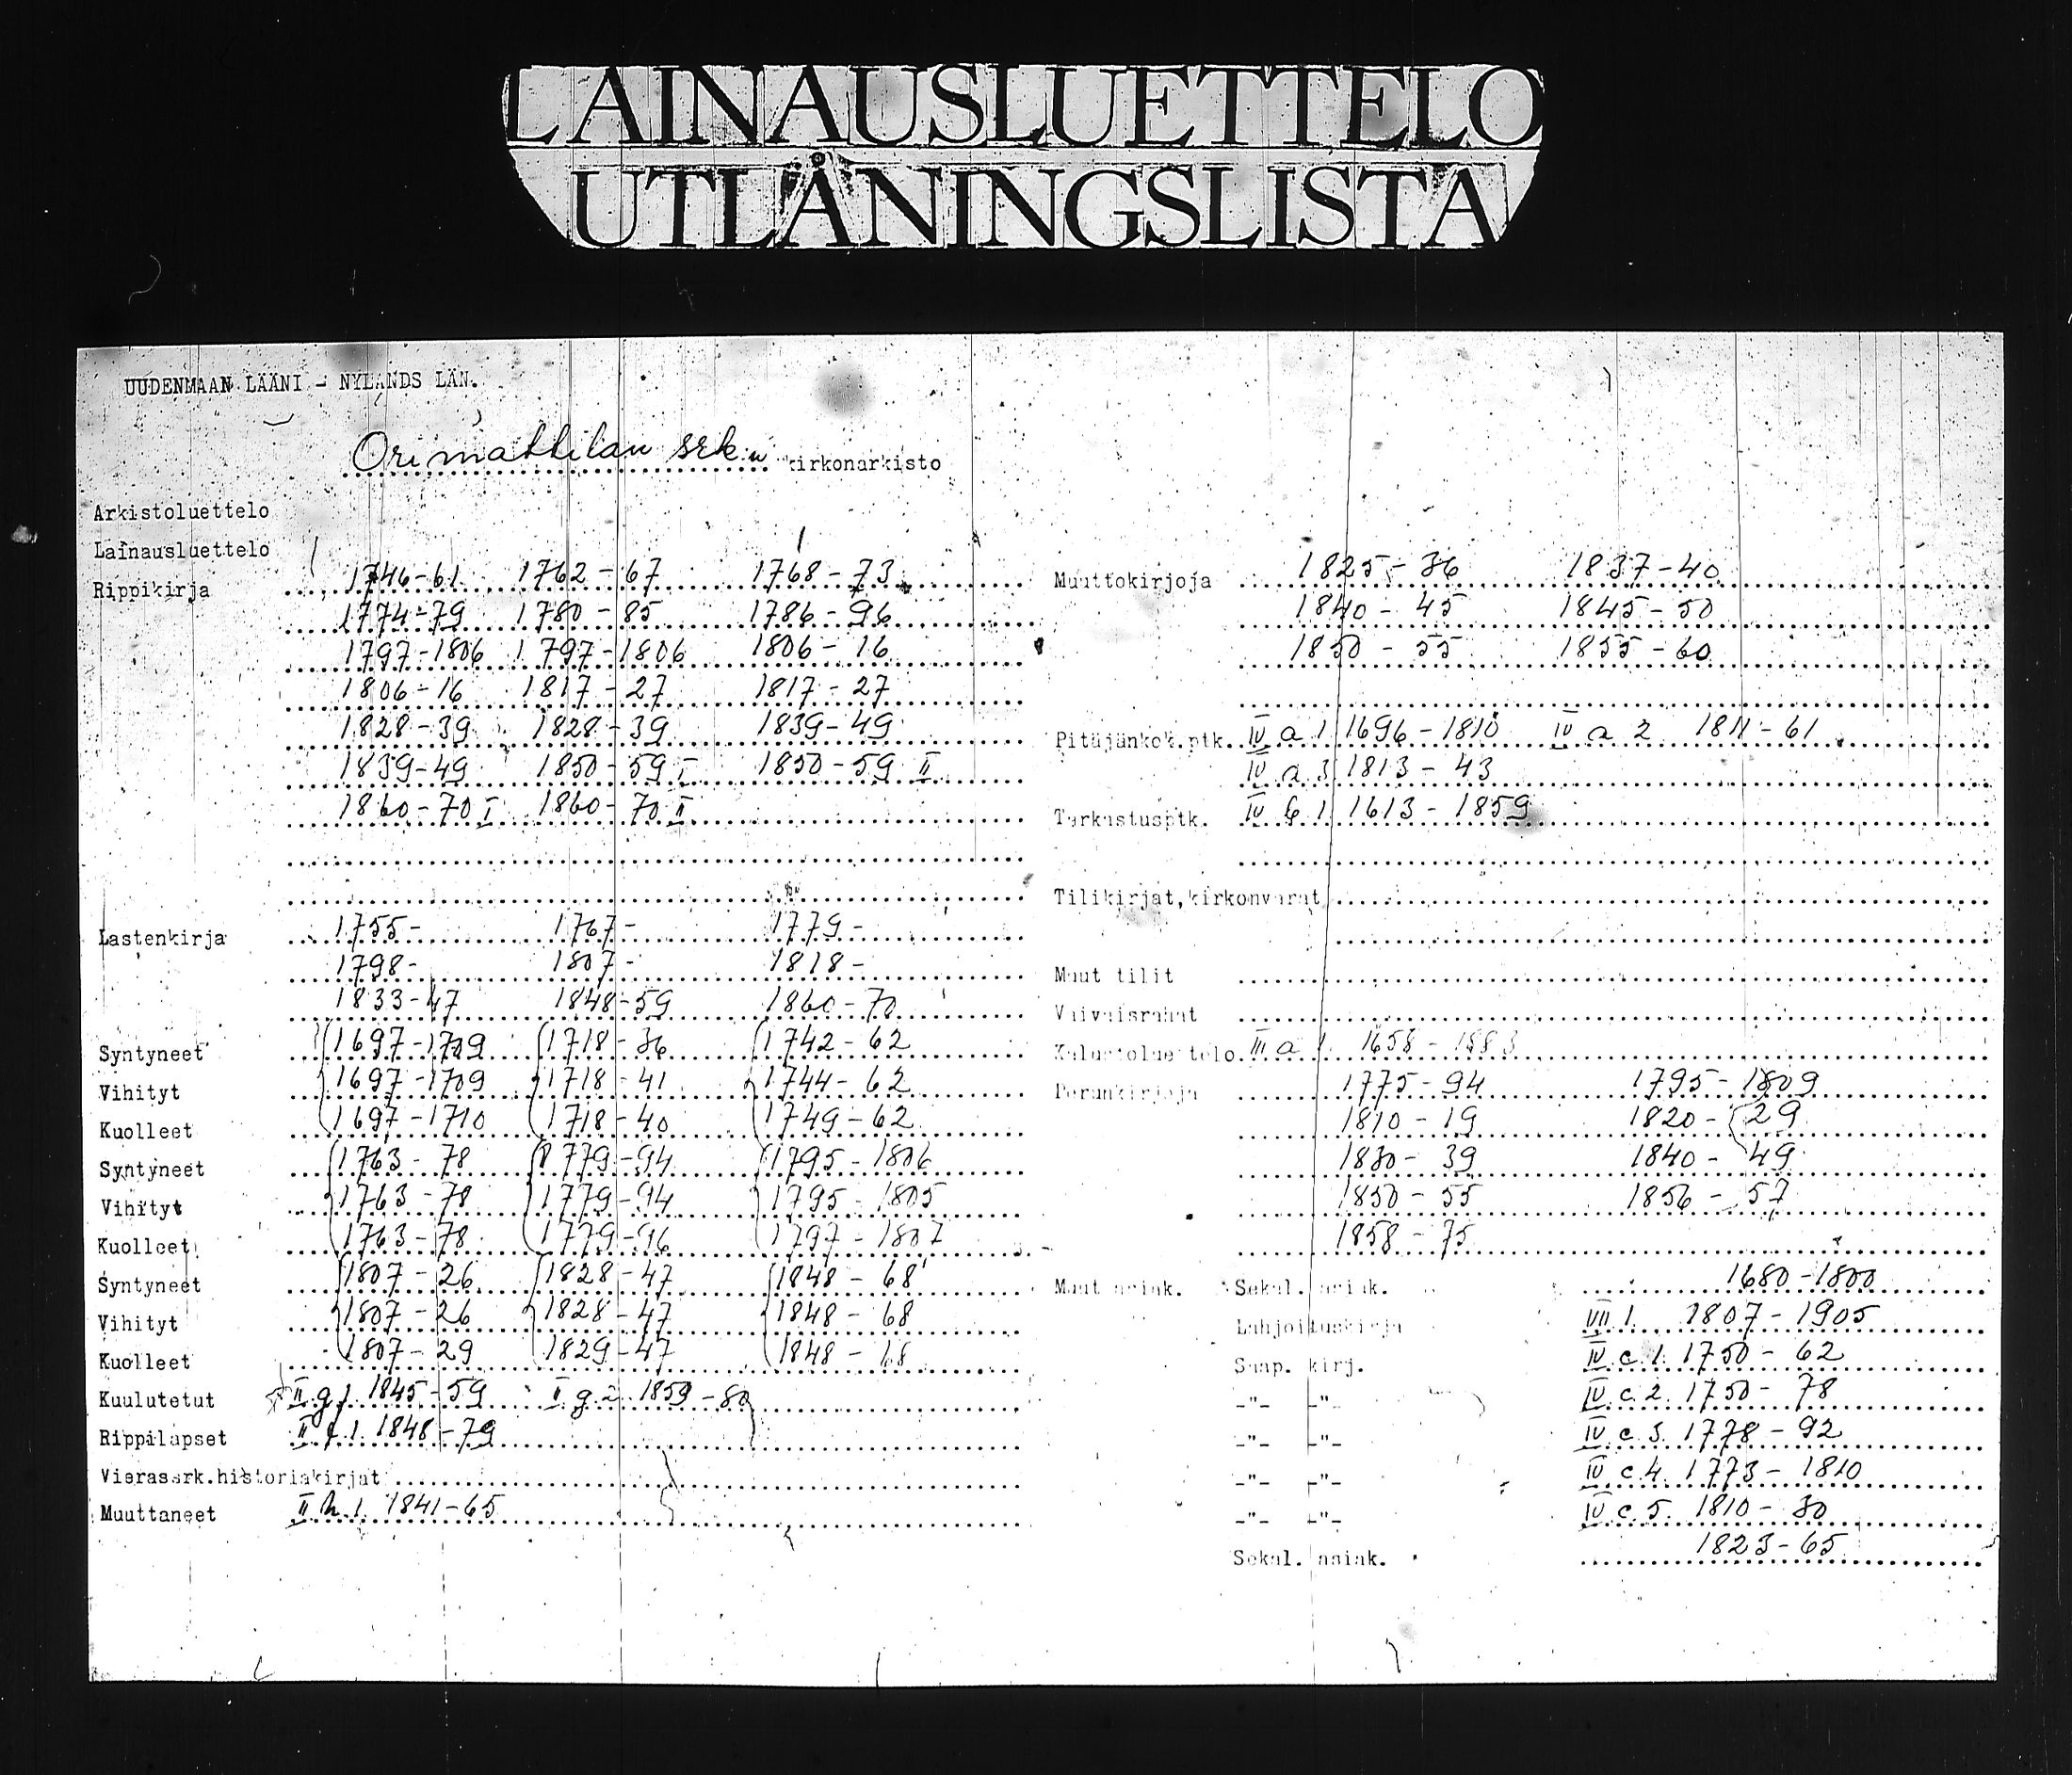 LAINAUSLUETTELO
UTLÅNINGSLISTA
UUDENMAAN LÄÄNI - NYLANDS LÄN.
Orimattilan srk:n kirkonarkisto
Arkistoluettelo
Lainausluettelo
Rippikirja 1746-61 1762-67 1768-73
1774-79 1780-85 1786-96
1797-1806 1797-1806 1806-16
1806-16 1817-27 1817-27
1828-39 1828-39 1839-49
1839-49 1850-59 I 1850-59 II
1860-70 I 1860-70 II
Lastenkirja 1755- 1767- 1779-
1798- 1807- 1818-
1833-47 1848-59 1860-70
Syntyneet 1697-1709 1718-36 1742-62
Vihityt 1697-1709 1718-41 1744-62
Kuolleet 1697-1710 1718-40 1749-62
Syntyneet 1763-78 1779-94 1795-1806
Vihityt 1763-78 1779-94 1795-1805
Kuolleet 1763-78 1779-96 1797-1807
Syntyneet 1807-26 1828-47 1848-68
Vihityt 1807-26 1828-47 1848-68
Kuolleet 1807-29 1829-47 1848-68
Kuulutetut II g 1. 1845-59 II g 2. 1859-80
Rippilapset II f 1. 1848-79
Vierassrk.historiakirjat
Muuttaneet II h 1. 1841-65
Muuttokirjoja 1825-36 1837-40
1840-45 1845-50
1850-55 1855-60
Pitäjänkok.ptk. IV a 1 1696-1810 IV a 2 1811-61
IV a 3 1813-43
Tarkastusptk. IV b 1 1613-1859
Tilikirjat, kirkonvarat
Muut tilit
Vaivaisrahat
Kalustoluettelo III a 1 1658-
Perunkirjoja 1775-94 1795-1809
1810-19 1820-29
1830-39 1840-49
1850-55 1856-57
1858-75
Muut asiak. Sekal. asiak. 1680-1800
Lahjoituskirja VII 1. 1807-1905
Saap. kirj. IV c 1. 1750-62
-"- -"- IV c 2. 1750-78
-"- -"- IV c 3. 1778-92
-"- -"- IV c 4. 1773-1810
-"- -"- IV c 5. 1810-30
Sekal. asiak. 1823-65